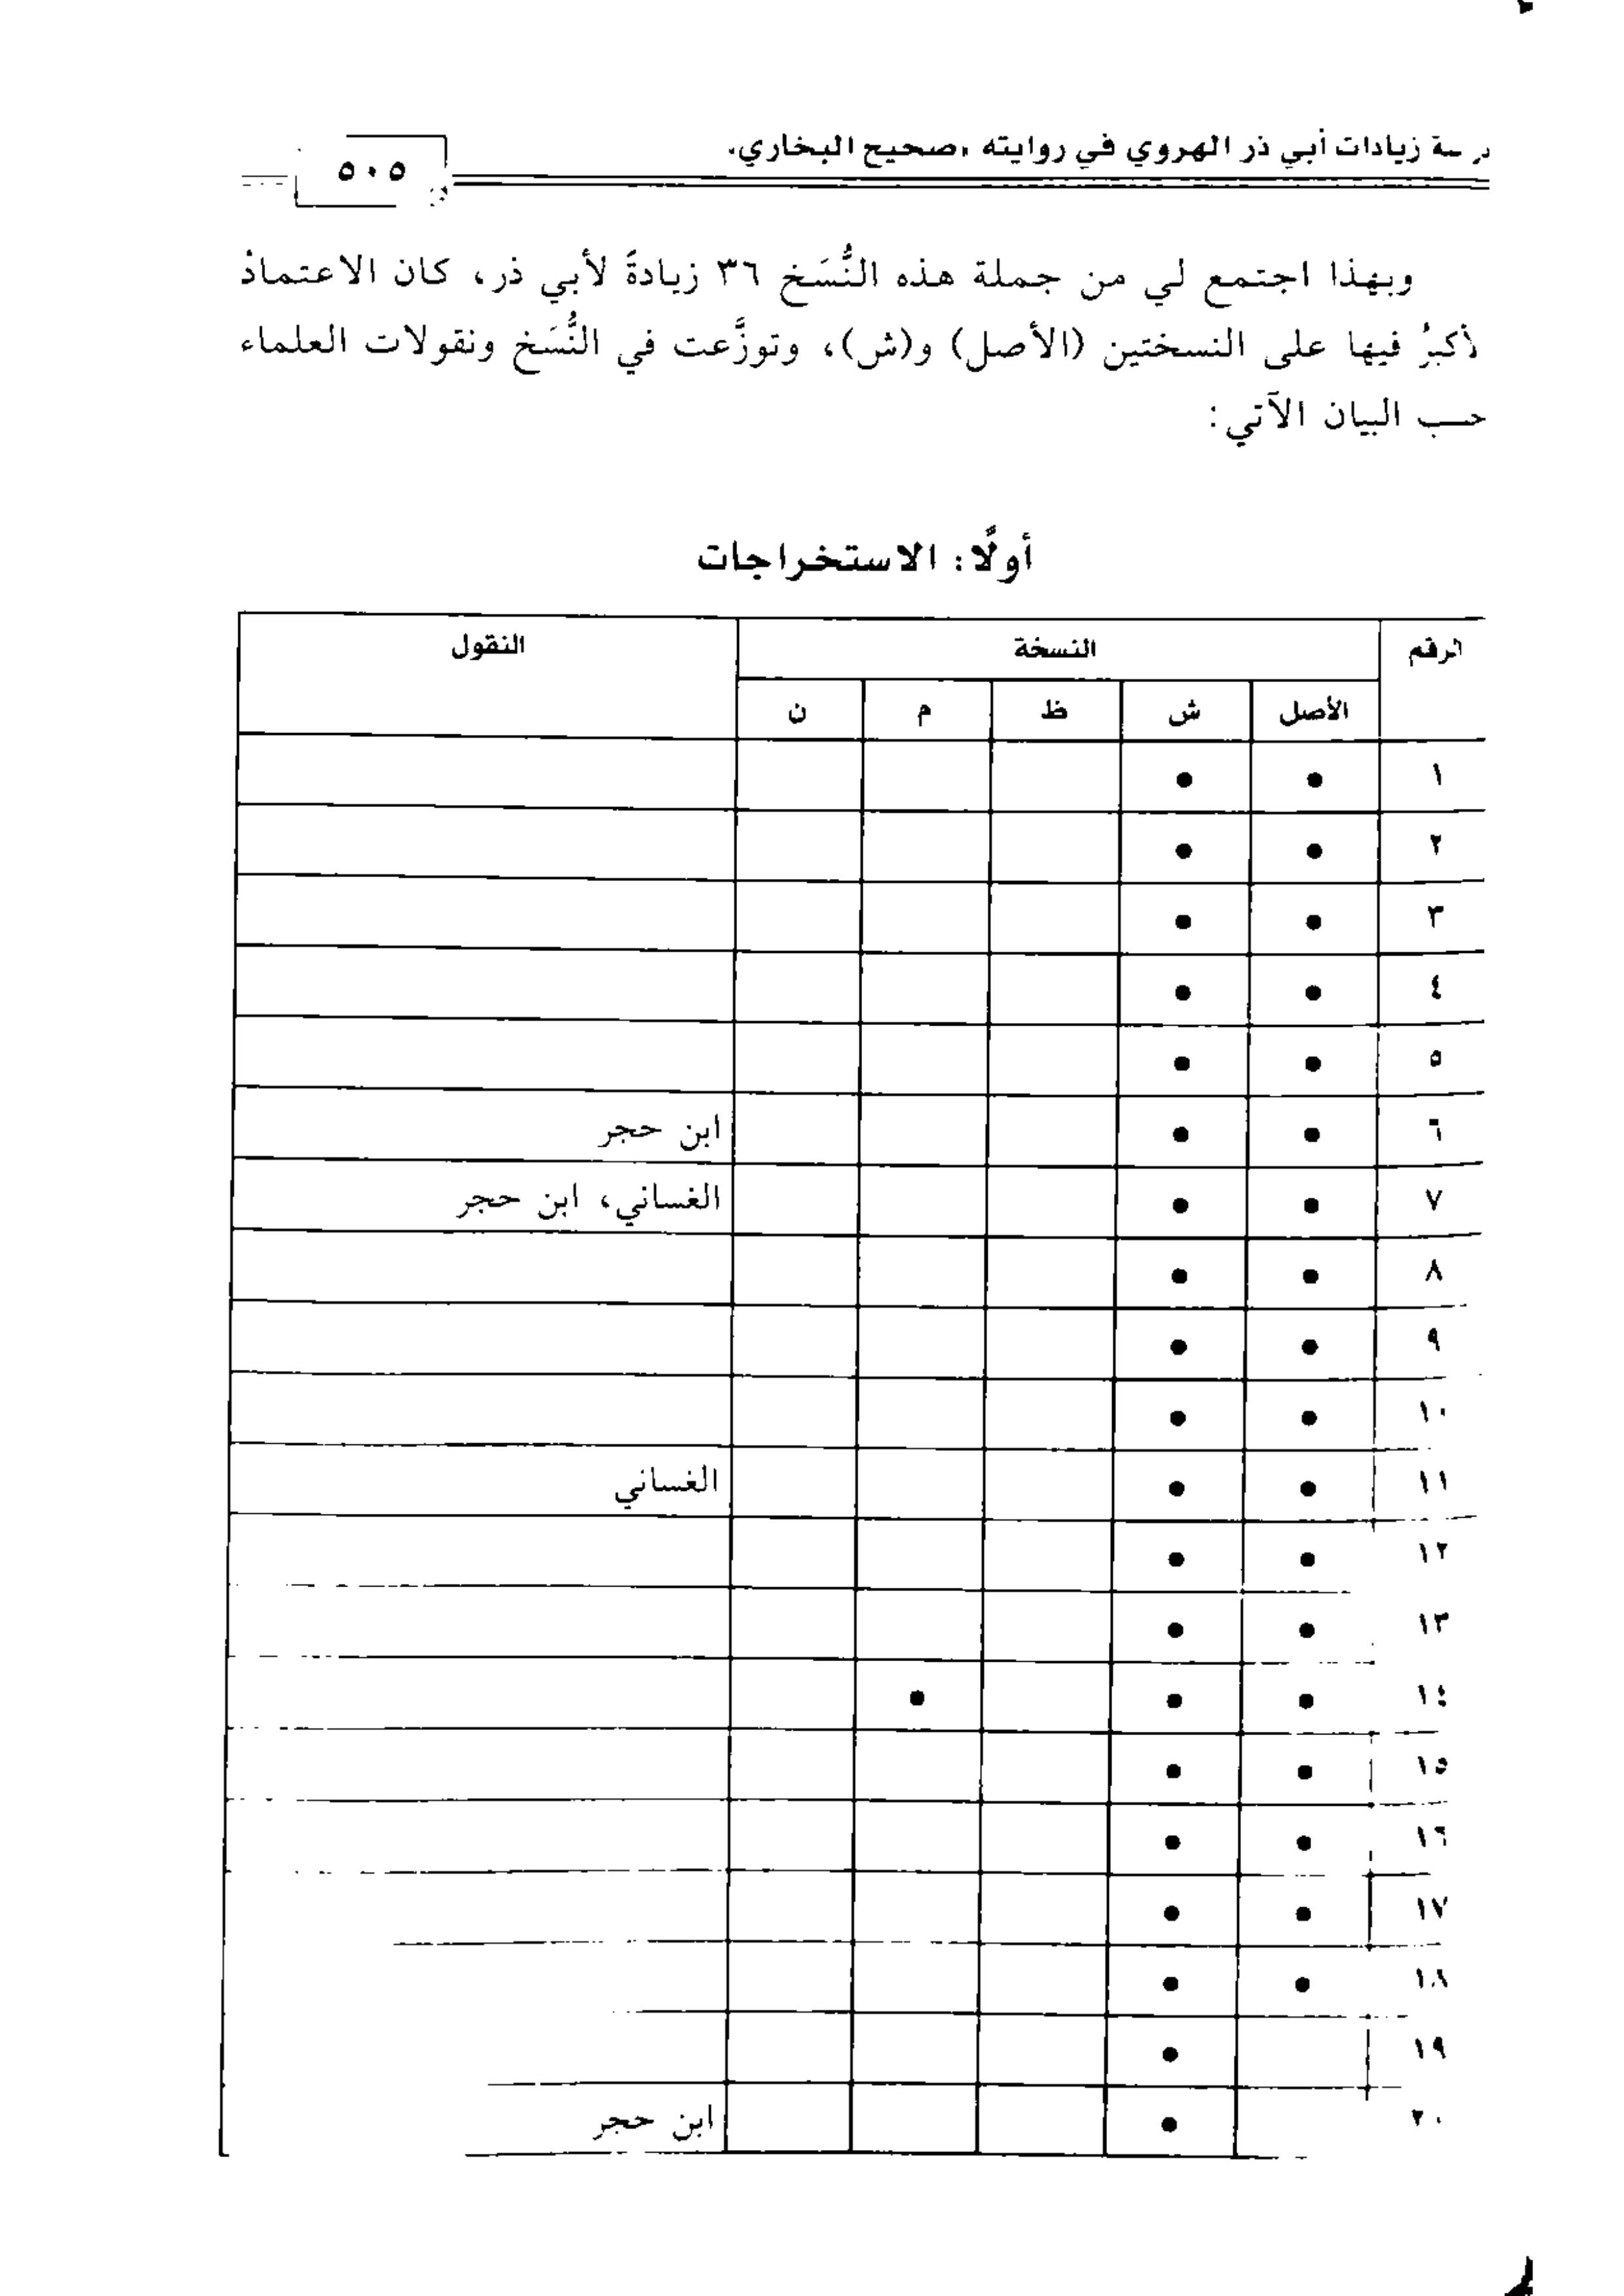 دراسة زيادات أبي ذر الهروي في روايته «صحيح البخاري»
٥٠٥
وبهذا اجتمع لي من جملة هذه النُّسَخ ٣٦ زيادةً لأبي ذر، كان الاعتمادُ
لأكبرُ فيها على النسختين (الأصل) و(ش)، وتوزَّعت في النُّسَخ ونقولات العلماء
حسب البيان الآتي:
أولًا: الاستخراجات
الرقم النسخة النقول
الأصل ش ظ م ن
١ • •
٢ • •
٣ • •
٤ • •
٥ • •
٦ • • ابن حجر
٧ • • الغساني، ابن حجر
٨ • •
٩ • •
١٠ • •
١١ • • الغساني
١٢ • •
١٣ • •
١٤ • • •
١٥ • •
١٦ • •
١٧ • •
١٨ • •
١٩ •
٢٠ • ابن حجر